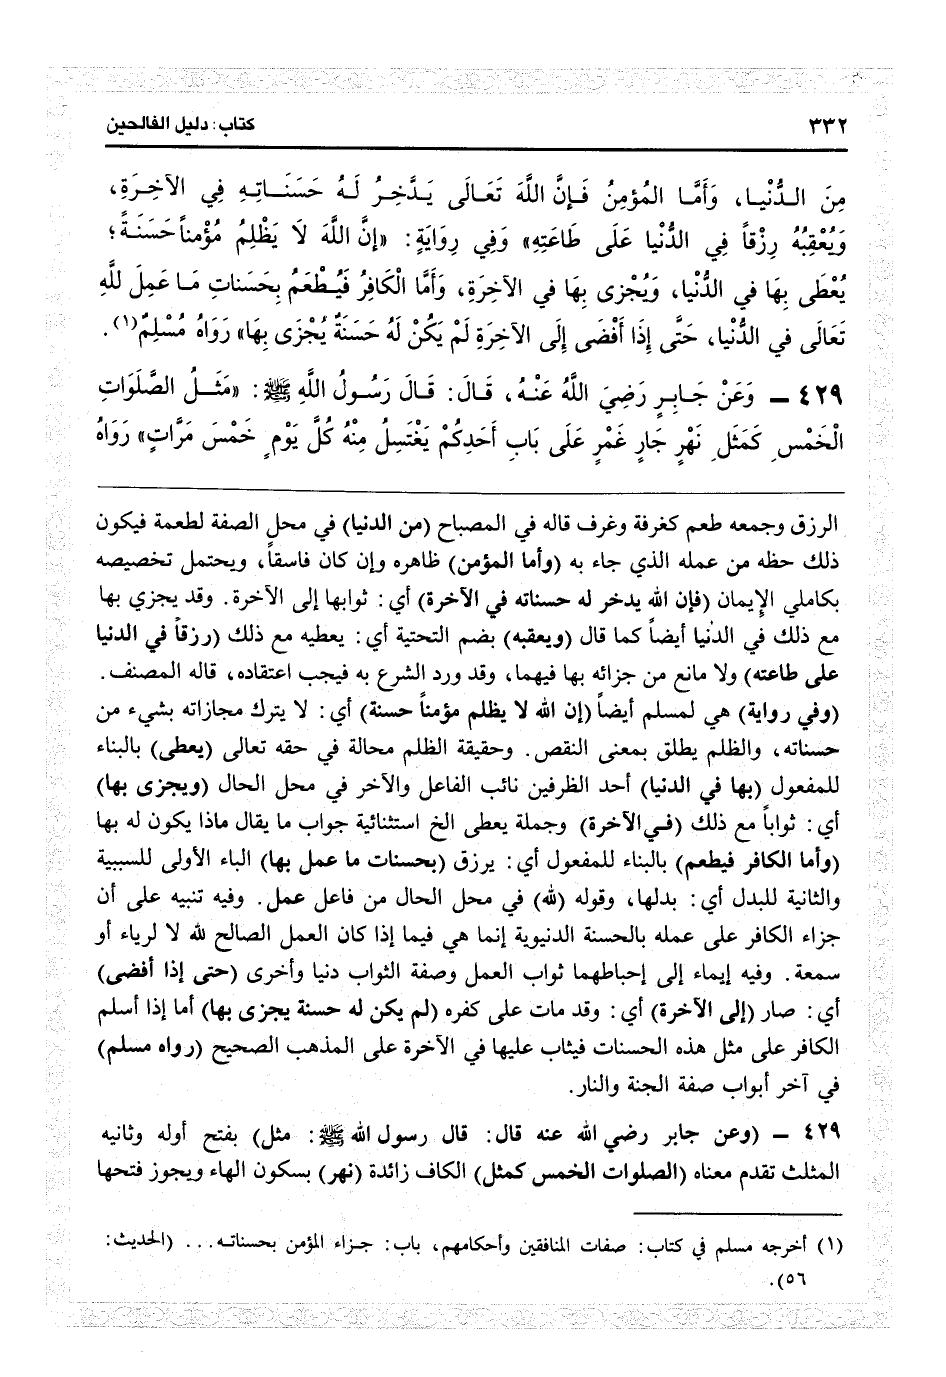 ٣٣٢ كتاب: دليل الفالحين
مِنَ الـدُّنْيـا، وَأَمَّـا المُؤمِنُ فَـإِنَّ اللَّهَ تَعَـالَى يَـدَّخِـرُ لَـهُ حَسَنَـاتِـهِ فِي الآخِـرَةِ،
وَيُعْقِبُهُ رِزْقاً فِي الدُّنْيا عَلَى طَاعَتِهِ» وَفِي رِوَايَةٍ: «إنَّ اللَّهَ لَا يَظْلِمُ مُؤْمِناً حَسَنَةً؛
يُعْطَى بِهَا فِي الدُّنْيا، وَيُجْزى بِهَا فِي الآخِرَةِ، وَأَمَّا الْكَافِرُ فَيُطْعَمُ بِحَسَنَاتِ مَـا عَمِلَ للَّهِ
تَعَالَى فِي الدُّنْيا، حَتَّى إِذَا أَفْضَى إِلَى الآخِرَةِ لَمْ يَكُنْ لَهُ حَسَنَةٌ يُجْزَى بِهَا» رَوَاهُ مُسْلِمٌ(١).
٤٢٩ ـ وَعَنْ جَـابِـرٍ رَضِيَ اللَّهُ عَنْـهُ، قَـالَ: قَـالَ رَسُـولُ اللَّهِ ﷺ: «مَثَـلُ الصَّلَوَاتِ
الْخَمْسِ كَمَثَلِ نَهْرٍ جَارٍ غَمْرٍ عَلَى بَابِ أَحَدِكُمْ يَغْتَسِلُ مِنْهُ كُلَّ يَوْمٍ خَمْسَ مَرَّاتٍ» رَوَاهُ
الرزق وجمعه طعم كغرفة وغرف قاله في المصباح (من الدنيا) في محل الصفة لطعمة فيكون
ذلك حظه من عمله الذي جاء به (وأما المؤمن) ظاهره وإن كان فاسقاً، ويحتمل تخصيصه
بكاملي الإيمان (فإن الله يدخر له حسناته في الآخرة) أي: ثوابها إلى الآخرة. وقد يجزي بها
مع ذلك في الدنيا أيضاً كما قال (ويعقبه) بضم التحتية أي: يعطيه مع ذلك (رزقاً في الدنيا
على طاعته) ولا مانع من جزائه بها فيهما، وقد ورد الشرع به فيجب اعتقاده، قاله المصنف.
(وفي رواية) هي لمسلم أيضاً (إن الله لا يظلم مؤمناً حسنة) أي: لا يترك مجازاته بشيء من
حسناته، والظلم يطلق بمعنى النقص. وحقيقة الظلم محالة في حقه تعالى (يعطى) بالبناء
للمفعول (بها في الدنيا) أحد الظرفين نائب الفاعل والآخر في محل الحال (ويجزى بها)
أي: ثواباً مع ذلك (في الآخرة) وجملة يعطى الخ استثنائية جواب ما يقال ماذا يكون له بها
(وأما الكافر فيطعم) بالبناء للمفعول أي: يرزق (بحسنات ما عمل بها) الباء الأولى للسببية
والثانية للبدل أي: بدلها، وقوله (لله) في محل الحال من فاعل عمل. وفيه تنبيه على أن
جزاء الكافر على عمله بالحسنة الدنيوية إنما هي فيما إذا كان العمل الصالح لله لا لرياء أو
سمعة. وفيه إيماء إلى إحباطهما ثواب العمل وصفة الثواب دنيا وأخرى (حتى إذا أفضى)
أي: صار (إلى الآخرة) أي: وقد مات على كفره (لم يكن له حسنة يجزى بها) أما إذا أسلم
الكافر على مثل هذه الحسنات فيثاب عليها في الآخرة على المذهب الصحيح (رواه مسلم)
في آخر أبواب صفة الجنة والنار.
٤٢٩ ـ (وعن جابر رضي الله عنه قال: قال رسول الله ﷺ: مثل) بفتح أوله وثانيه
المثلث تقدم معناه (الصلوات الخمس كمثل) الكاف زائدة (نهر) بسكون الهاء ويجوز فتحها
(١) أخرجه مسلم في كتاب: صفات المنافقين وأحكامهم، باب: جـزاء المؤمن بحسناتـه... (الحديث:
٥٦).